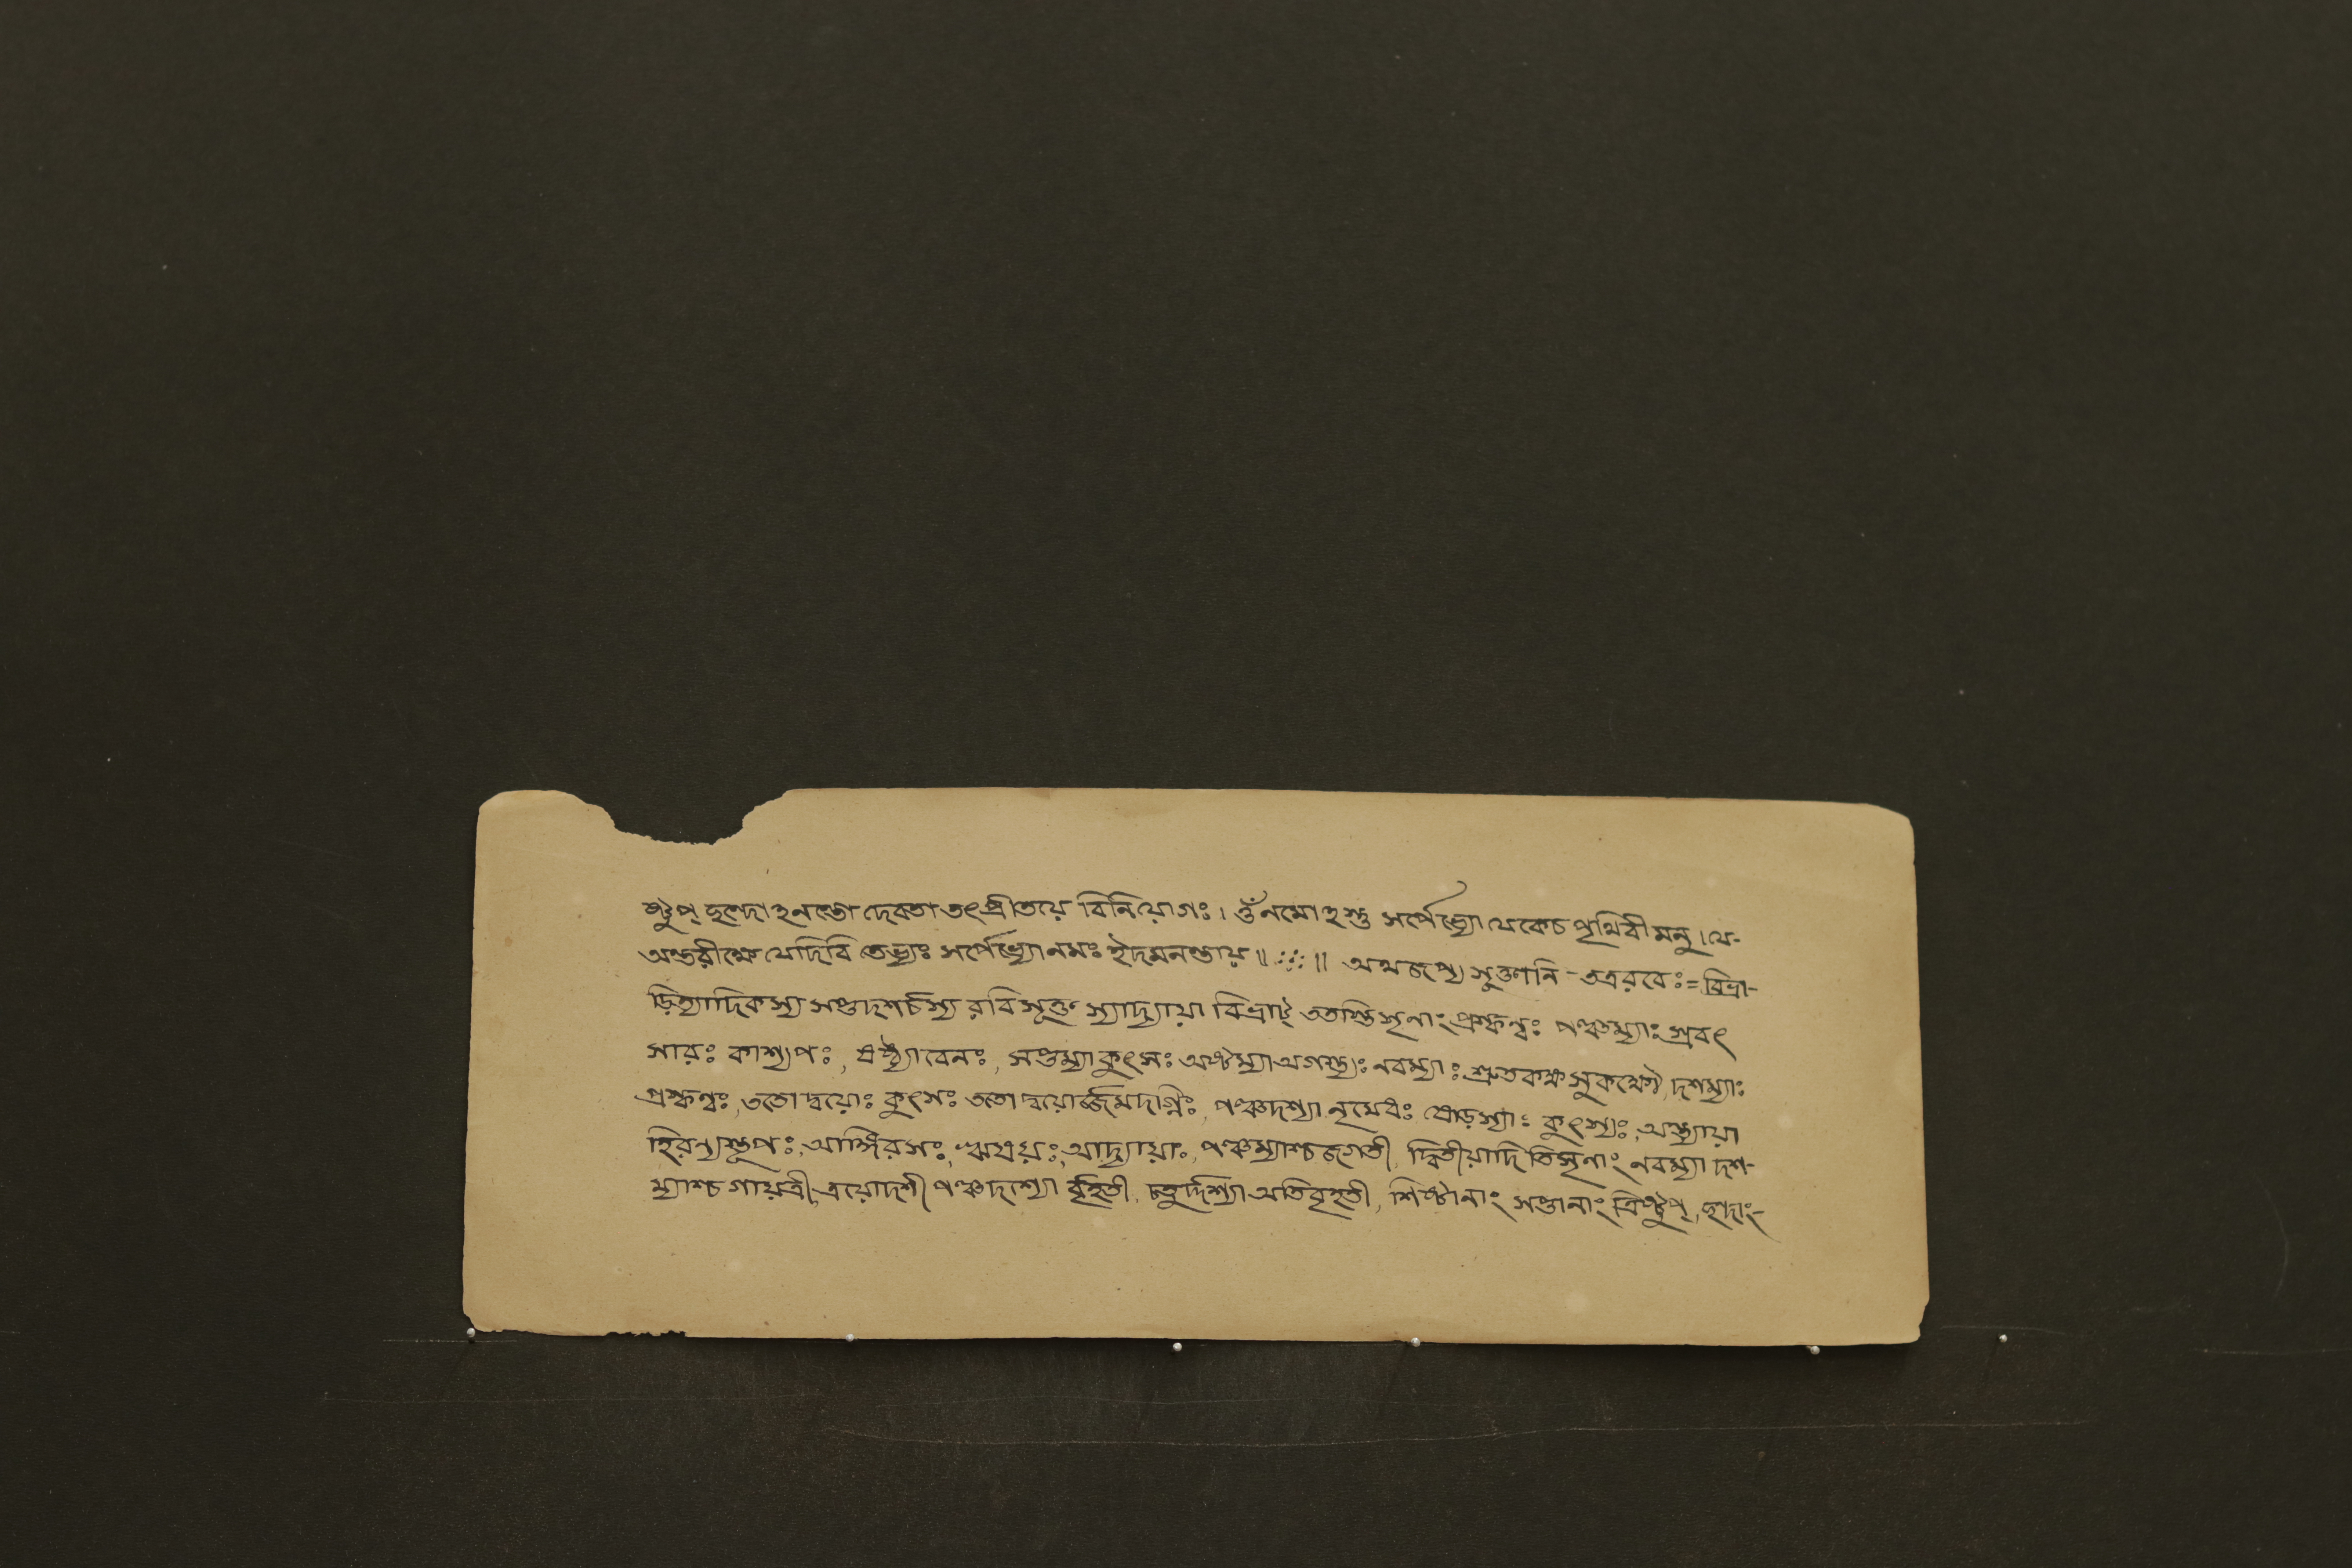 ষ্টুপ্ ছন্দোহনন্তো দেবতা তৎপ্রীতয়ে বিনিয়োগঃ। ওঁ নমোহস্তু সর্পেভ্যো যেকেচ পৃথিবী মনু। যে-
অন্তরীক্ষে যেদিবি তেভ্যঃ সর্পেভ্যোনমঃ ইদমনন্তায়॥ ॥ অথ জপ্য সূক্তানি - তত্র রবেঃ = বিভ্রা-
ড়িত্যাদিকস্য সপ্তদশর্চস্য রবিসূক্ত স্যাদ্যায়া বিভ্রাট্ ততস্তিসৃনাং প্রস্কন্বঃ পঞ্চম্যাঃ প্রবৎ
সারঃ কাশ্যপঃ, ষষ্ঠ্যাবেনঃ, সপ্তম্যাকুৎসঃ অষ্টম্যা অগস্ত্যঃ নবম্যাঃ শ্রুতকক্ষ সুকক্ষৌ, দশম্যাঃ
প্রস্কন্বঃ, ততো দ্বয়োঃ কুৎসঃ ততো দ্বয়োর্জ্জমদাগ্নিঃ, পঞ্চদশ্যা নৃমেধঃ ষোড়স্যাঃ কুৎস্যঃ, অন্ত্যায়া
হিরন্যস্তূপঃ, আঙ্গিরসঃ, ঋষয়ঃ, আদ্যায়াঃ, পঞ্চম্যাশ্চ জগতী, দ্বিতীয়াদি তিসৃনাং নবম্যা দশ-
ম্যাশ্চ গায়ত্রী, ত্রয়োদশী পঞ্চদশ্যো র্বৃহতী, চতুর্দ্দশ্যা অতিবৃহতী, শিষ্টানাং সপ্তানাং ত্রিষ্টুপ্, ছন্দাং-